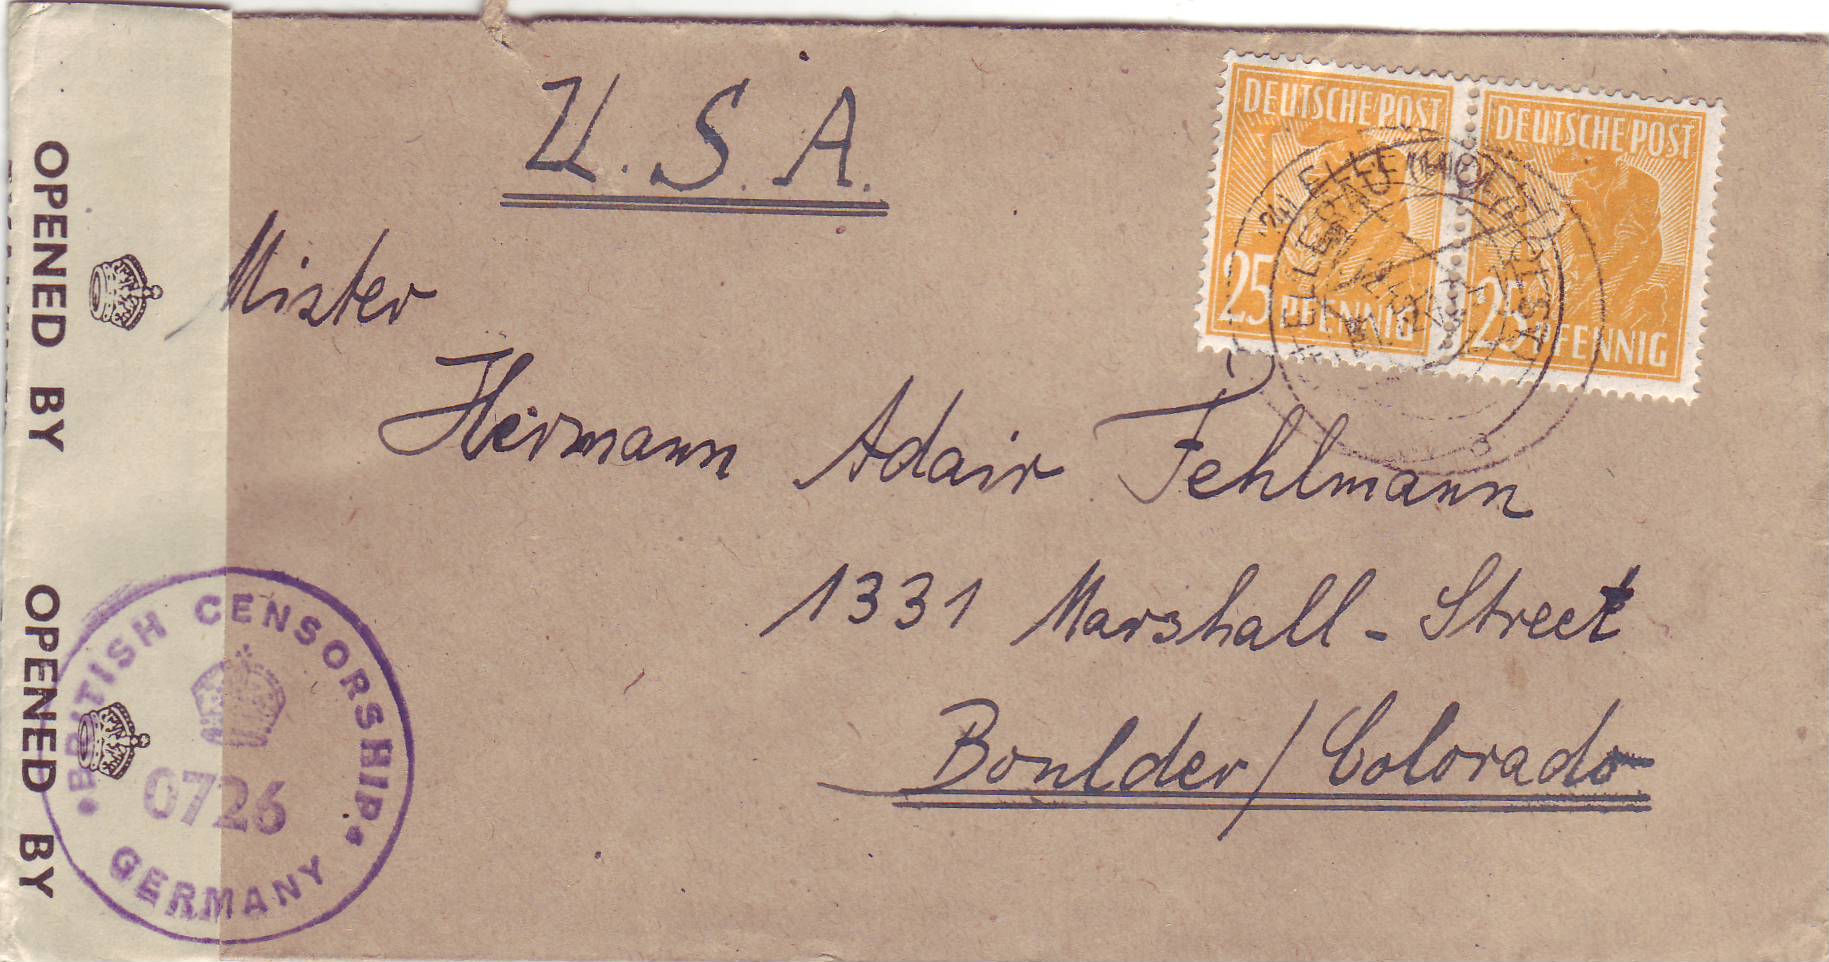 OPENED BY
OPENED BY
BRITISH CENSORSHIP
0726
GERMANY
U.S.A.
DEUTSCHE POST
25 PFENNIG
DEUTSCHE POST
25 PFENNIG
Mister
Hermann Adair Fehlmann
1331 Marshall-Street
Boulder/Colorado